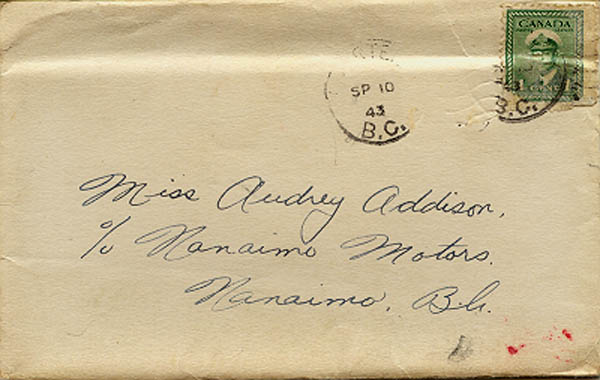 CANADA
1 CENT 1
SP 10
43
B.C.
43
B.C.
Miss Audrey Addison,
c/o Nanaimo Motors.
Nanaimo, B.C.